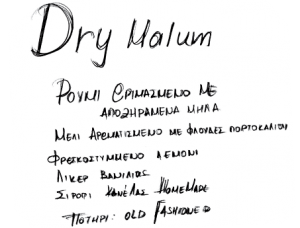 Dry Malum
Ρουμι εριμασμενο με
αποξηραμενα μηλα
Μελι αρωματισμενο με φλουδες πορτοκαλιου
Φρεσκοστυμμενο λεμονι
Λικερ βανιλιας
Σιροπι κανελας Homemade
Ποτηρι: old fashioned